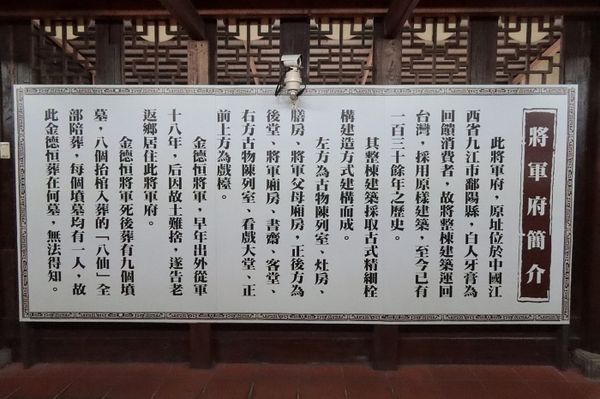 將軍府簡介
此將軍府，原址位於中國江
西省九江市鄱陽縣，白人牙膏為
回饋消費者，故將整棟建築運回
台灣，採用原樣建築，至今已有
一百三十餘年之歷史。
其整棟建築採取古式精細栓
構建造方式建構而成。
左方為古物陳列室、灶房、
膳房、將軍父母廂房，正後方為
後堂、將軍廂房、書齋、客堂、
右方古物陳列室、看戲大堂、正
前上方為戲檯。
金德恒將軍，早年出外從軍
十八年，后因故土難捨，遂告老
返鄉居住此將軍府。
金德恒將軍死後葬有九個墳
墓，八個抬棺入葬的「八仙」全
部陪葬，每個墳墓均有一人，故
此金德恒葬在何墓，無法得知。